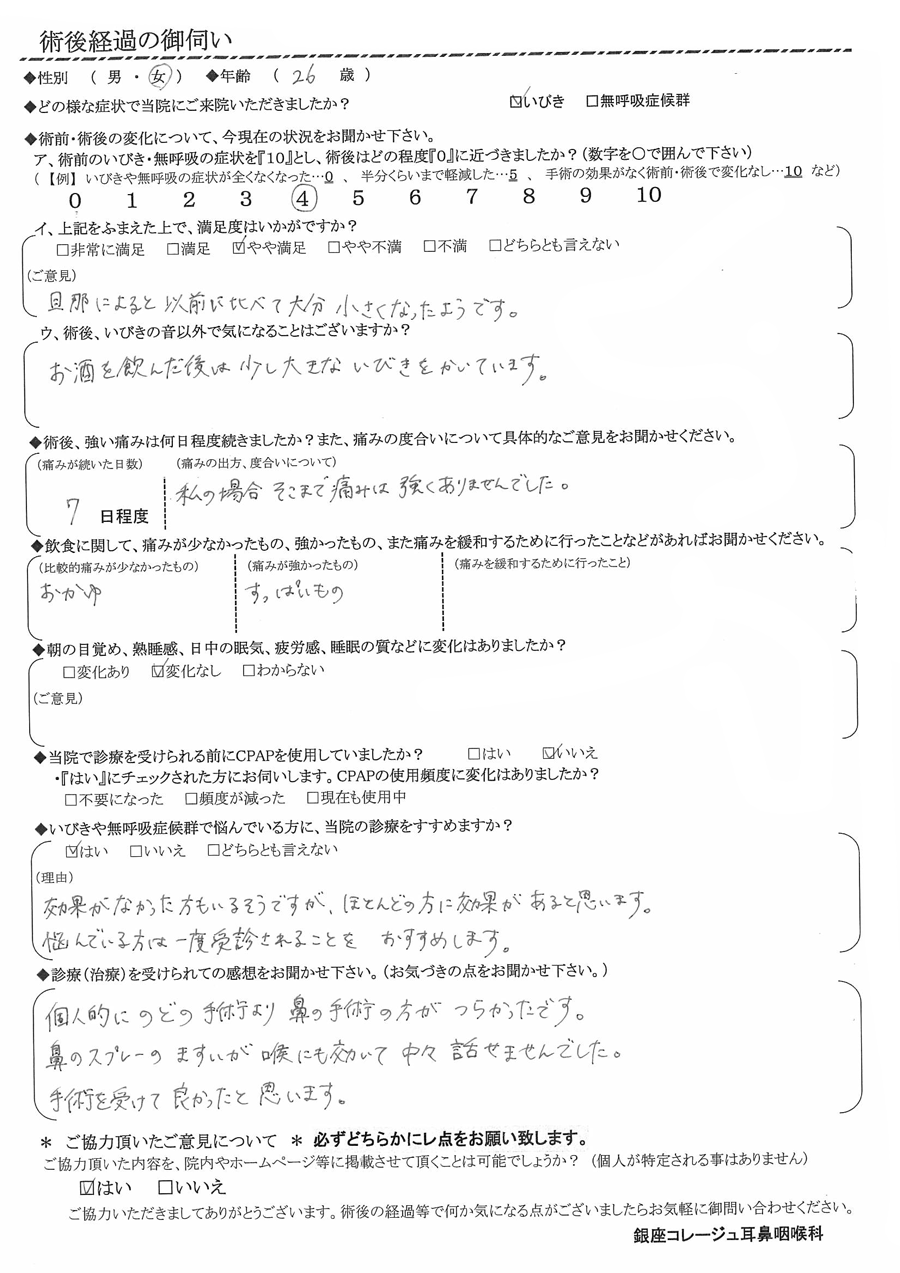 術後経過の御伺い
◆性別 ( 男 ・ 女 ) ◆年齢 ( 26 歳 )
◆どの様な症状で当院にご来院いただきましたか? ☑いびき □無呼吸症候群
◆術前・術後の変化について、今現在の状況をお聞かせ下さい。
ア、術前のいびき・無呼吸の症状を『10』とし、術後はどの程度『0』に近づきましたか?(数字を○で囲んで下さい)
(【例】いびきや無呼吸の症状が全くなくなった…0 、 半分くらいまで軽減した…5 、 手術の効果がなく術前・術後で変化なし…10 など)
0 1 2 3 4 5 6 7 8 9 10
イ、上記をふまえた上で、満足度はいかがですか?
□非常に満足 □満足 ☑やや満足 □やや不満 □不満 □どちらとも言えない
(ご意見)
旦那によると以前に比べて大分 小さくなったようです。
ウ、術後、いびきの音以外で気になることはございますか?
お酒を飲んだ後は少し大きないびきをかいています。
◆術後、強い痛みは何日程度続きましたか?また、痛みの度合いについて具体的なご意見をお聞かせください。
(痛みが続いた日数) (痛みの出方、度合いについて)
私の場合そこまで痛みは強くありませんでした。
7 日程度
◆飲食に関して、痛みが少なかったもの、強かったもの、また痛みを緩和するために行ったことなどがあればお聞かせください。
(比較的痛みが少なかったもの) (痛みが強かったもの) (痛みを緩和するために行ったこと)
おかゆ すっぱいもの
◆朝の目覚め、熟睡感、日中の眠気、疲労感、睡眠の質などに変化はありましたか?
□変化あり ☑変化なし □わからない
(ご意見)
◆当院で診療を受けられる前にCPAPを使用していましたか? □はい ☑いいえ
・『はい』にチェックされた方にお伺いします。CPAPの使用頻度に変化はありましたか?
□不要になった □頻度が減った □現在も使用中
◆いびきや無呼吸症候群で悩んでいる方に、当院の診療をすすめますか?
☑はい □いいえ □どちらとも言えない
(理由)
効果がなかった方もいるそうですが、ほとんどの方に効果があると思います。
悩んでいる方は一度受診されることを おすすめします。
◆診療(治療)を受けられての感想をお聞かせ下さい。(お気づきの点をお聞かせ下さい。)
個人的にのどの手術より鼻の手術の方がつらかったです。
鼻のスプレーのますいが喉にも効いて中々話せませんでした。
手術を受けて良かったと思います。
＊ ご協力頂いたご意見について ＊ 必ずどちらかにレ点をお願い致します。
ご協力頂いた内容を、院内やホームページ等に掲載させて頂くことは可能でしょうか? (個人が特定される事はありません)
☑はい □いいえ
ご協力いただきましてありがとうございます。術後の経過等で何か気になる点がございましたらお気軽に御問い合わせください。
銀座コレージュ耳鼻咽喉科